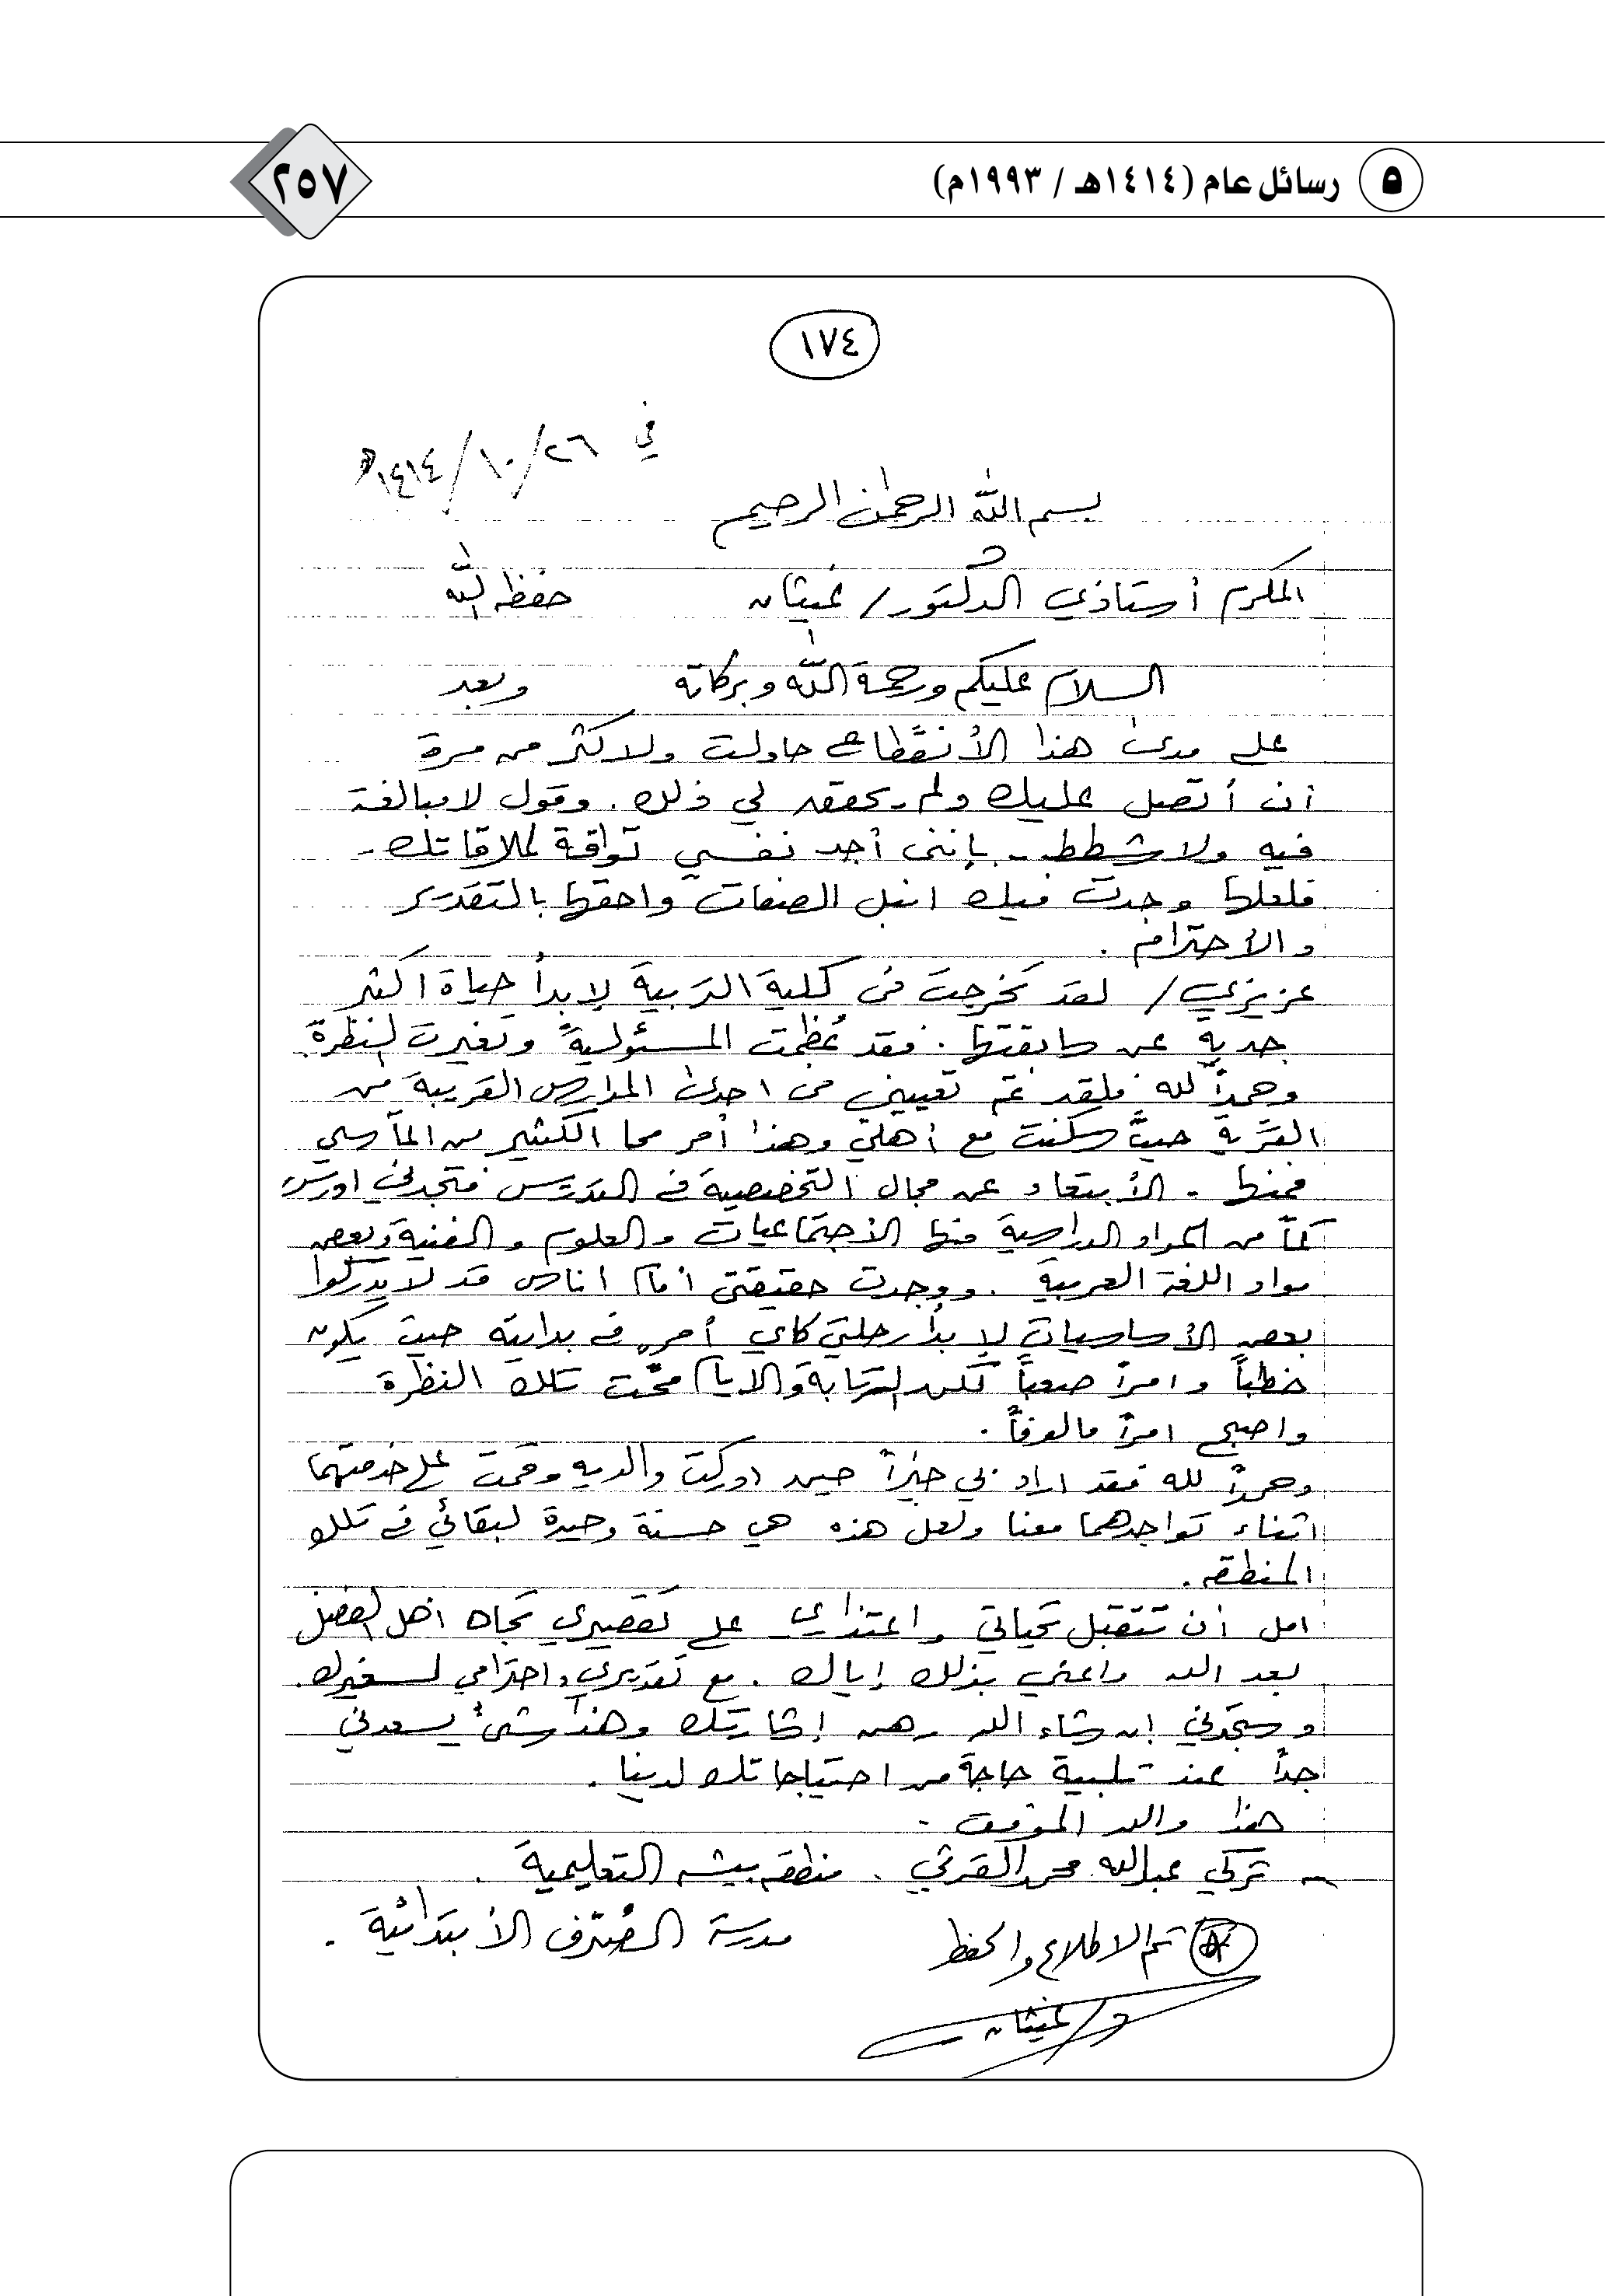 ٥ رسائل عام (١٤١٤هـ / ١٩٩٣م)
٢٥٧
١٧٤
في ٢٦/١٠/١٤١٤هـ
بسم الله الرحمن الرحيم
المكرم أستاذي الدكتور/ غيثان حفظه الله
السلام عليكم ورحمة الله وبركاته وبعد
على مدى هذا الأنقطاع حاولت ولاكثر من مرة
أن أتصل عليك ولم يحقق لي ذلك. وقول لا مبالغة
فيه ولا شطط - بإنني أجد نفسي تواقة لملاقاتك -
فلعلها وجدت فيك انبل الصفات واحقها بالتقدير
والأحترام.
عزيزي/ لقد تخرجت من كلية التربية لإبدأ حياة اكثر
جدية عن سابقتها. فقد عُظمت المسئولية وتغيرت النظرة
وحمداً لله فلقد تم تعييني في احدى المدارس القريبة من
القرية حيث سكنت مع أهلي وهذا أمر محا الكثير من المآسي
فمنها - الأبتعاد عن مجال التخصصية في التدريس فتجدني ادرس
كماً من المواد الدراسية منها الأجتماعيات والعلوم والفنية وبعض
مواد اللغة العربية. ووجدت حقيقتي أمام اناس قد لا يدركوا
بعض الأساسيات لإبدأ رحلتي كاي أمر في بدايته حيث يكون
خطباً وامراً صعباً لكن الرتابة والايام محت تلك النظرة
واصبح امراً مالوفاً.
وحمداً لله فقد اراد بي خيراً حين ادركت والديه وقمت على خدمتهما
اثناء تواجدهما معنا ولعل هذه هي حسنة وحيدة لبقائي في تلك
المنطقه.
امل أن تتقبل تحياتي واعتذاري على تقصيري تجاه اهل الفضل
بعد الله واعني بذلك إياك. مع تقديري واحترامي لـ
وستجدني ان شاء الله رهن إشارتك وهذا شئ يسعدني
جداً عند تلبية حاجة من احتياجاتك لدينا.
هذا والله الموفق -
تركي عبدالله محمد القرني. منطقه بيشه التعليمية.
مدرسة الأبتدائية.
تم الاطلاع والحفظ
د/ غيثان